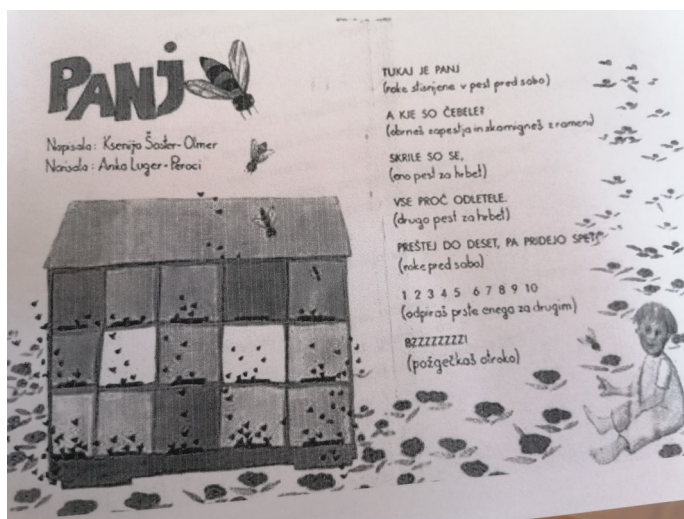 PANJ
Napisala: Ksenija Šoster-Olmer
Narisala: Anka Luger-Peroci
TUKAJ JE PANJ
(roke stisnjene v pest pred sabo)
A KJE SO ČEBELE?
(obrneš zapestja in skomigneš z rameni)
SKRILE SO SE,
(eno pest za hrbet)
VSE PROČ ODLETELE.
(drugo pest za hrbet)
PREŠTEJ DO DESET, PA PRIDEJO SPET.
(roke pred sabo)
1 2 3 4 5 6 7 8 9 10
(odpiraš prste enega za drugim)
BZZZZZZZZ!
(požgečkaš otroka)